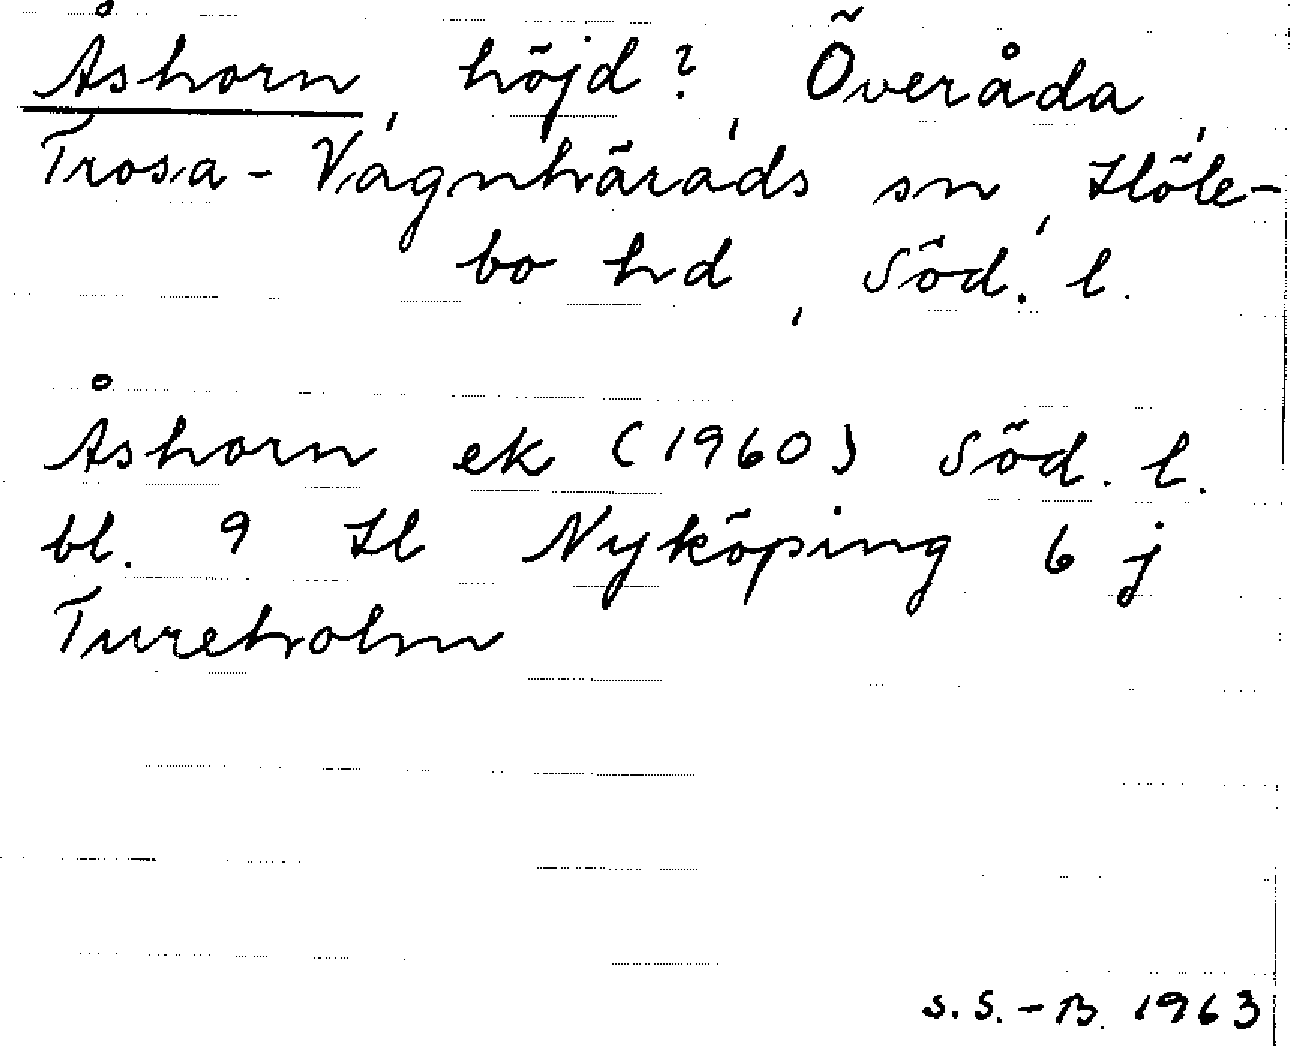 Åshorn, höjd?, Överåda,
Trosa-Vagnhärads sn, Höle-
bo hd, Söd. l.
Åshorn ek (1960) Söd. l.
bl. 9 Il Nyköping 6 j
Tureholm
S. S.-B. 1963